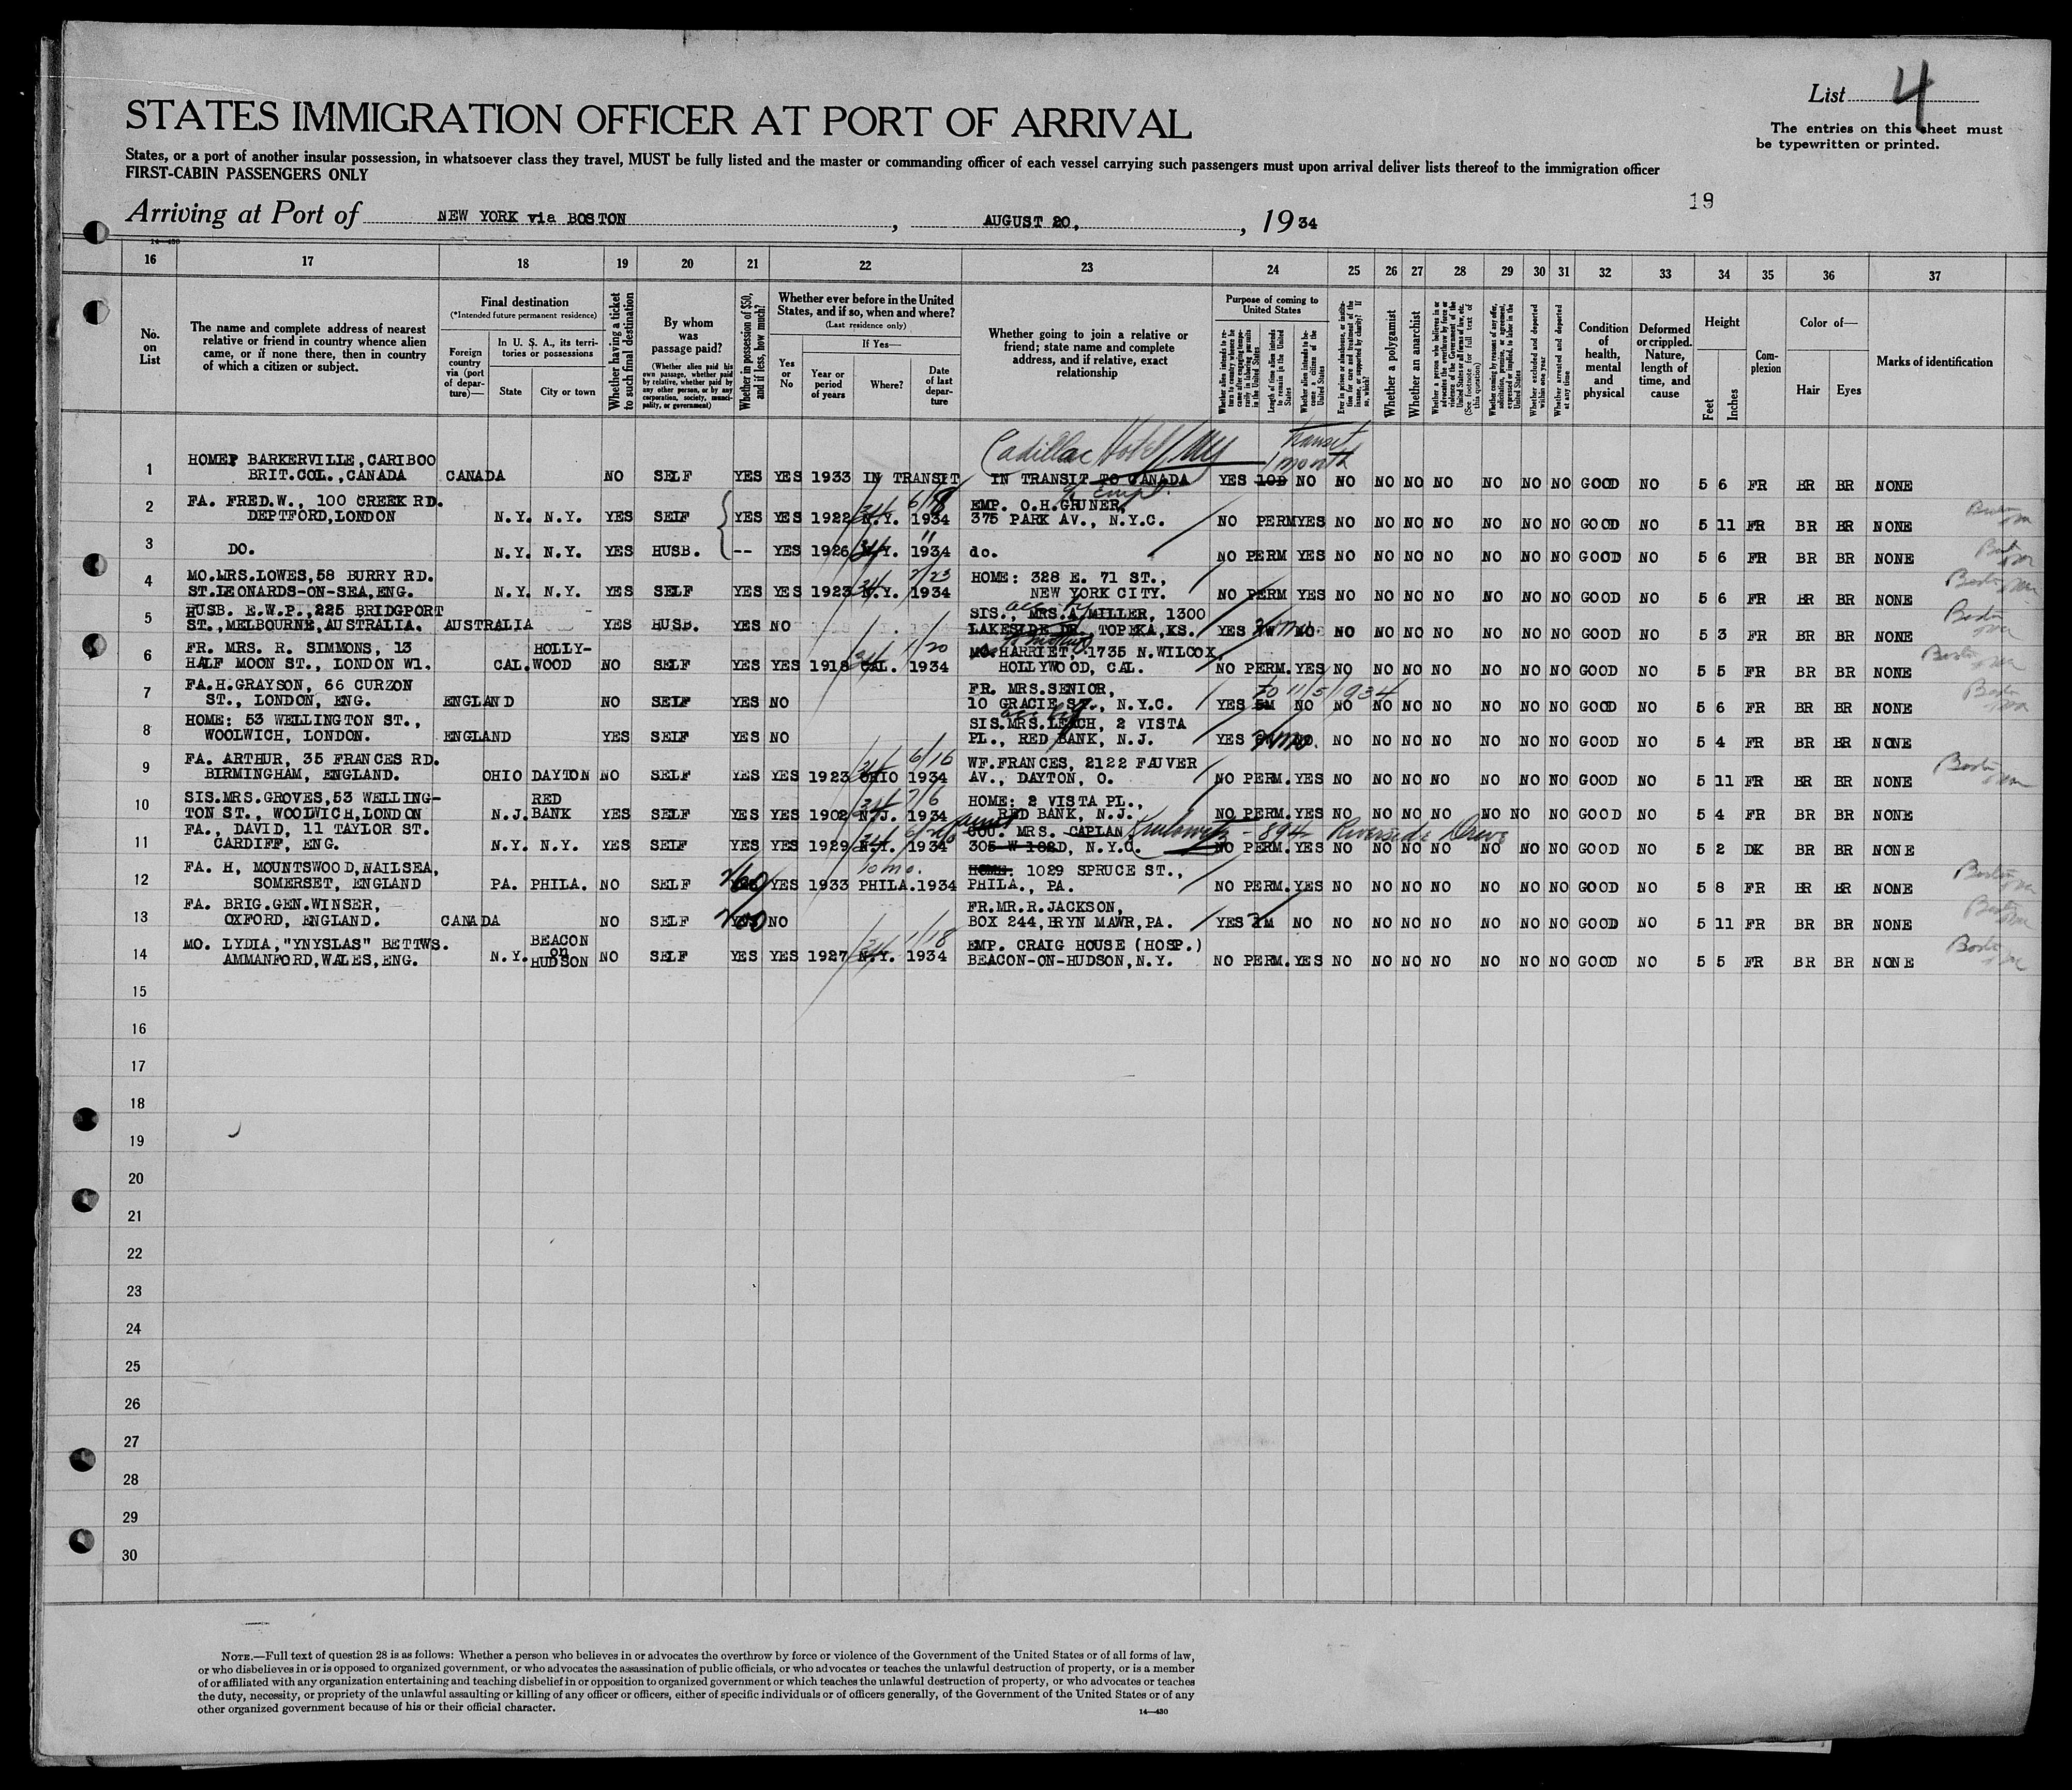 List 4
STATES IMMIGRATION OFFICER AT PORT OF ARRIVAL
The entries on this sheet must
be typewritten or printed.
States, or a port of another insular possession, in whatsoever class they travel, MUST be fully listed and the master or commanding officer of each vessel carrying such passengers must upon arrival deliver lists thereof to the immigration officer
FIRST-CABIN PASSENGERS ONLY
19
Arriving at Port of NEW YORK via BOSTON, AUGUST 20, 1934
14—430
16 17 18 19 20 21 22 23 24 25 26 27 28 29 30 31 32 33 34 35 36 37
No. on List
The name and complete address of nearest relative or friend in country whence alien came, or if none there, then in country of which a citizen or subject.
Final destination
(*Intended future permanent residence)
Foreign country via (port of departure)—
In U. S. A., its territories or possessions
State
City or town
Whether having a ticket to such final destination
By whom was passage paid?
(Whether alien paid his own passage, whether paid by relative, whether paid by any other person, or by any corporation, society, municipality, or government)
Whether in possession of $50, and if less, how much?
Whether ever before in the United States, and if so, when and where?
(Last residence only)
Yes or No
If Yes—
Year or period of years
Where?
Date of last departure
Whether going to join a relative or friend; state name and complete address, and if relative, exact relationship
Purpose of coming to United States
Whether alien intends to return to country whence he came after engaging temporarily in laboring pursuits in the United States
Length of time alien intends to remain in the United States
Whether alien intends to become a citizen of the United States
Ever in prison or almshouse, or institution for care and treatment of the insane, or supported by charity? If so, which?
Whether a polygamist
Whether an anarchist
Whether a person who believes in or advocates the overthrow by force or violence of the Government of the United States or all forms of law, etc. (See footnote for full text of this question)
Whether coming by reasons of any offer, solicitation, promise, or agreement, expressed or implied, to labor in the United States
Whether excluded and deported within one year
Whether arrested and deported at any time
Condition of health, mental and physical
Deformed or crippled. Nature, length of time, and cause
Height
Feet
Inches
Complexion
Color of—
Hair
Eyes
Marks of identification
Cadillac Hotel, NY transit 1 month
1 HOME: BARKERVILLE, CARIBOO
BRIT.COL., CANADA CANADA NO SELF YES YES 1933 IN TRANSIT IN TRANSIT TO CANADA YES 10D NO NO NO NO NO NO NO NO GOOD NO 5 6 FR BR BR NONE
2 FA. FRED.W., 100 CREEK RD. 6/18 EMP. O.H.GRUNER, Empl.
DEPTFORD,LONDON N.Y. N.Y. YES SELF YES YES 1922 N.Y. 1934 375 PARK AV., N.Y.C. NO PERM YES NO NO NO NO NO NO NO GOOD NO 5 11 FR BR BR NONE Boston
3 DO. N.Y. N.Y. YES HUSB. -- YES 1926 N.Y. 1934 " do. NO PERM YES NO NO NO NO NO NO NO GOOD NO 5 6 FR BR BR NONE
4 MO.MRS.LOWES,58 BURRY RD. 7/23 HOME: 328 E. 71 ST.,
ST.LEONARDS-ON-SEA,ENG. N.Y. N.Y. YES SELF YES YES 1923 N.Y. 1934 NEW YORK CITY. NO PERM YES NO NO NO NO NO NO NO GOOD NO 5 6 FR BR BR NONE Boston
5 HUSB. E.W.P.,225 BRIDGPORT SIS., MRS.A.MILLER, 1300
ST.,MELBOURNE,AUSTRALIA. AUSTRALIA YES HUSB. YES NO LAKESIDE DR., TOPEKA,KS. YES NO. NO NO NO NO NO NO NO GOOD NO 5 3 FR BR BR NONE Boston
6 FR. MRS. R. SIMMONS, 13 HOLLY- 1/20 MO.HARRIET, 1735 N.WILCOX,
HALF MOON ST., LONDON W1. CAL. WOOD NO SELF YES YES 1918 CAL. 1934 HOLLYWOOD, CAL. NO PERM. YES NO NO NO NO NO NO NO GOOD NO 5 5 FR BR BR NONE Boston
7 FA.H.GRAYSON, 66 CURZON FR. MRS.SENIOR, to 11/5/1934
ST., LONDON, ENG. ENGLAND NO SELF YES NO 10 GRACIE ST., N.Y.C. YES 5M NO NO NO NO NO NO NO NO GOOD NO 5 6 FR BR BR NONE Boston
8 HOME: 53 WELLINGTON ST., SIS.MRS.LEACH, 2 VISTA
WOOLWICH, LONDON. ENGLAND YES SELF YES NO PL., RED BANK, N.J. YES NO. NO NO NO NO NO NO NO GOOD NO 5 4 FR BR BR NONE
9 FA. ARTHUR, 35 FRANCES RD. 6/16 WF.FRANCES, 2122 FAUVER
BIRMINGHAM, ENGLAND. OHIO DAYTON NO SELF YES YES 1923 OHIO 1934 AV., DAYTON, O. NO PERM. YES NO NO NO NO NO NO NO GOOD NO 5 11 FR BR BR NONE Boston
10 SIS.MRS.GROVES,53 WELLING- RED 7/6 HOME: 2 VISTA PL.,
TON ST., WOOLWICH,LONDON N.J. BANK YES SELF YES YES 1902 N.J. 1934 RED BANK, N.J. NO PERM. YES NO NO NO NO NO NO NO GOOD NO 5 4 FR BR BR NONE
11 FA., DAVID, 11 TAYLOR ST. aunt COU. MRS. CAPLAN - 894 Riverside Drive
CARDIFF, ENG. N.Y. N.Y. YES SELF YES YES 1929 N.Y. 1934 305 W 102D, N.Y.C. NO PERM. YES NO NO NO NO NO NO NO GOOD NO 5 2 DK BR BR NONE
12 FA. H, MOUNTSWOOD,NAILSEA, 10 mo. HOME: 1029 SPRUCE ST.,
SOMERSET, ENGLAND PA. PHILA. NO SELF YES YES 1933 PHILA. 1934 PHILA., PA. NO PERM. YES NO NO NO NO NO NO NO GOOD NO 5 8 FR BR BR NONE Boston
13 FA. BRIG.GEN.WINSER, FR.MR.R.JACKSON,
OXFORD, ENGLAND. CANADA NO SELF YES NO BOX 244,BRYN MAWR,PA. YES 2M NO NO NO NO NO NO NO NO GOOD NO 5 11 FR BR BR NONE Boston
14 MO. LYDIA,"YNYSLAS" BETTWS. BEACON on 1/18 EMP. CRAIG HOUSE (HOSP.)
AMMANFORD,WALES,ENG. N.Y. HUDSON NO SELF YES YES 1927 N.Y. 1934 BEACON-ON-HUDSON,N.Y. NO PERM. YES NO NO NO NO NO NO NO GOOD NO 5 5 FR BR BR NONE Boston
15
16
17
18
19
20
21
22
23
24
25
26
27
28
29
30
NOTE.—Full text of question 28 is as follows: Whether a person who believes in or advocates the overthrow by force or violence of the Government of the United States or of all forms of law,
or who disbelieves in or is opposed to organized government, or who advocates the assassination of public officials, or who advocates or teaches the unlawful destruction of property, or is a member
of or affiliated with any organization entertaining and teaching disbelief in or opposition to organized government or which teaches the unlawful destruction of property, or who advocates or teaches
the duty, necessity, or propriety of the unlawful assaulting or killing of any officer or officers, either of specific individuals or of officers generally, of the Government of the United States or of any
other organized government because of his or their official character.
14—430